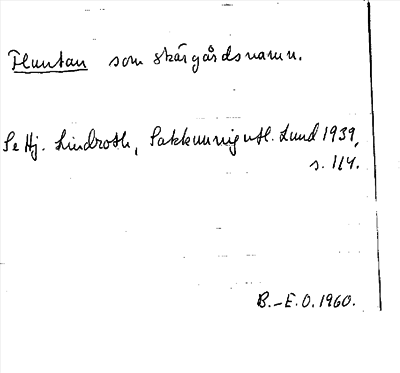 Fluntan som skärgårdsnamn.
Se Hj. Lindroth, Sakkunnigutl. Lund 1939,
s. 114.
B.-E. O. 1960.